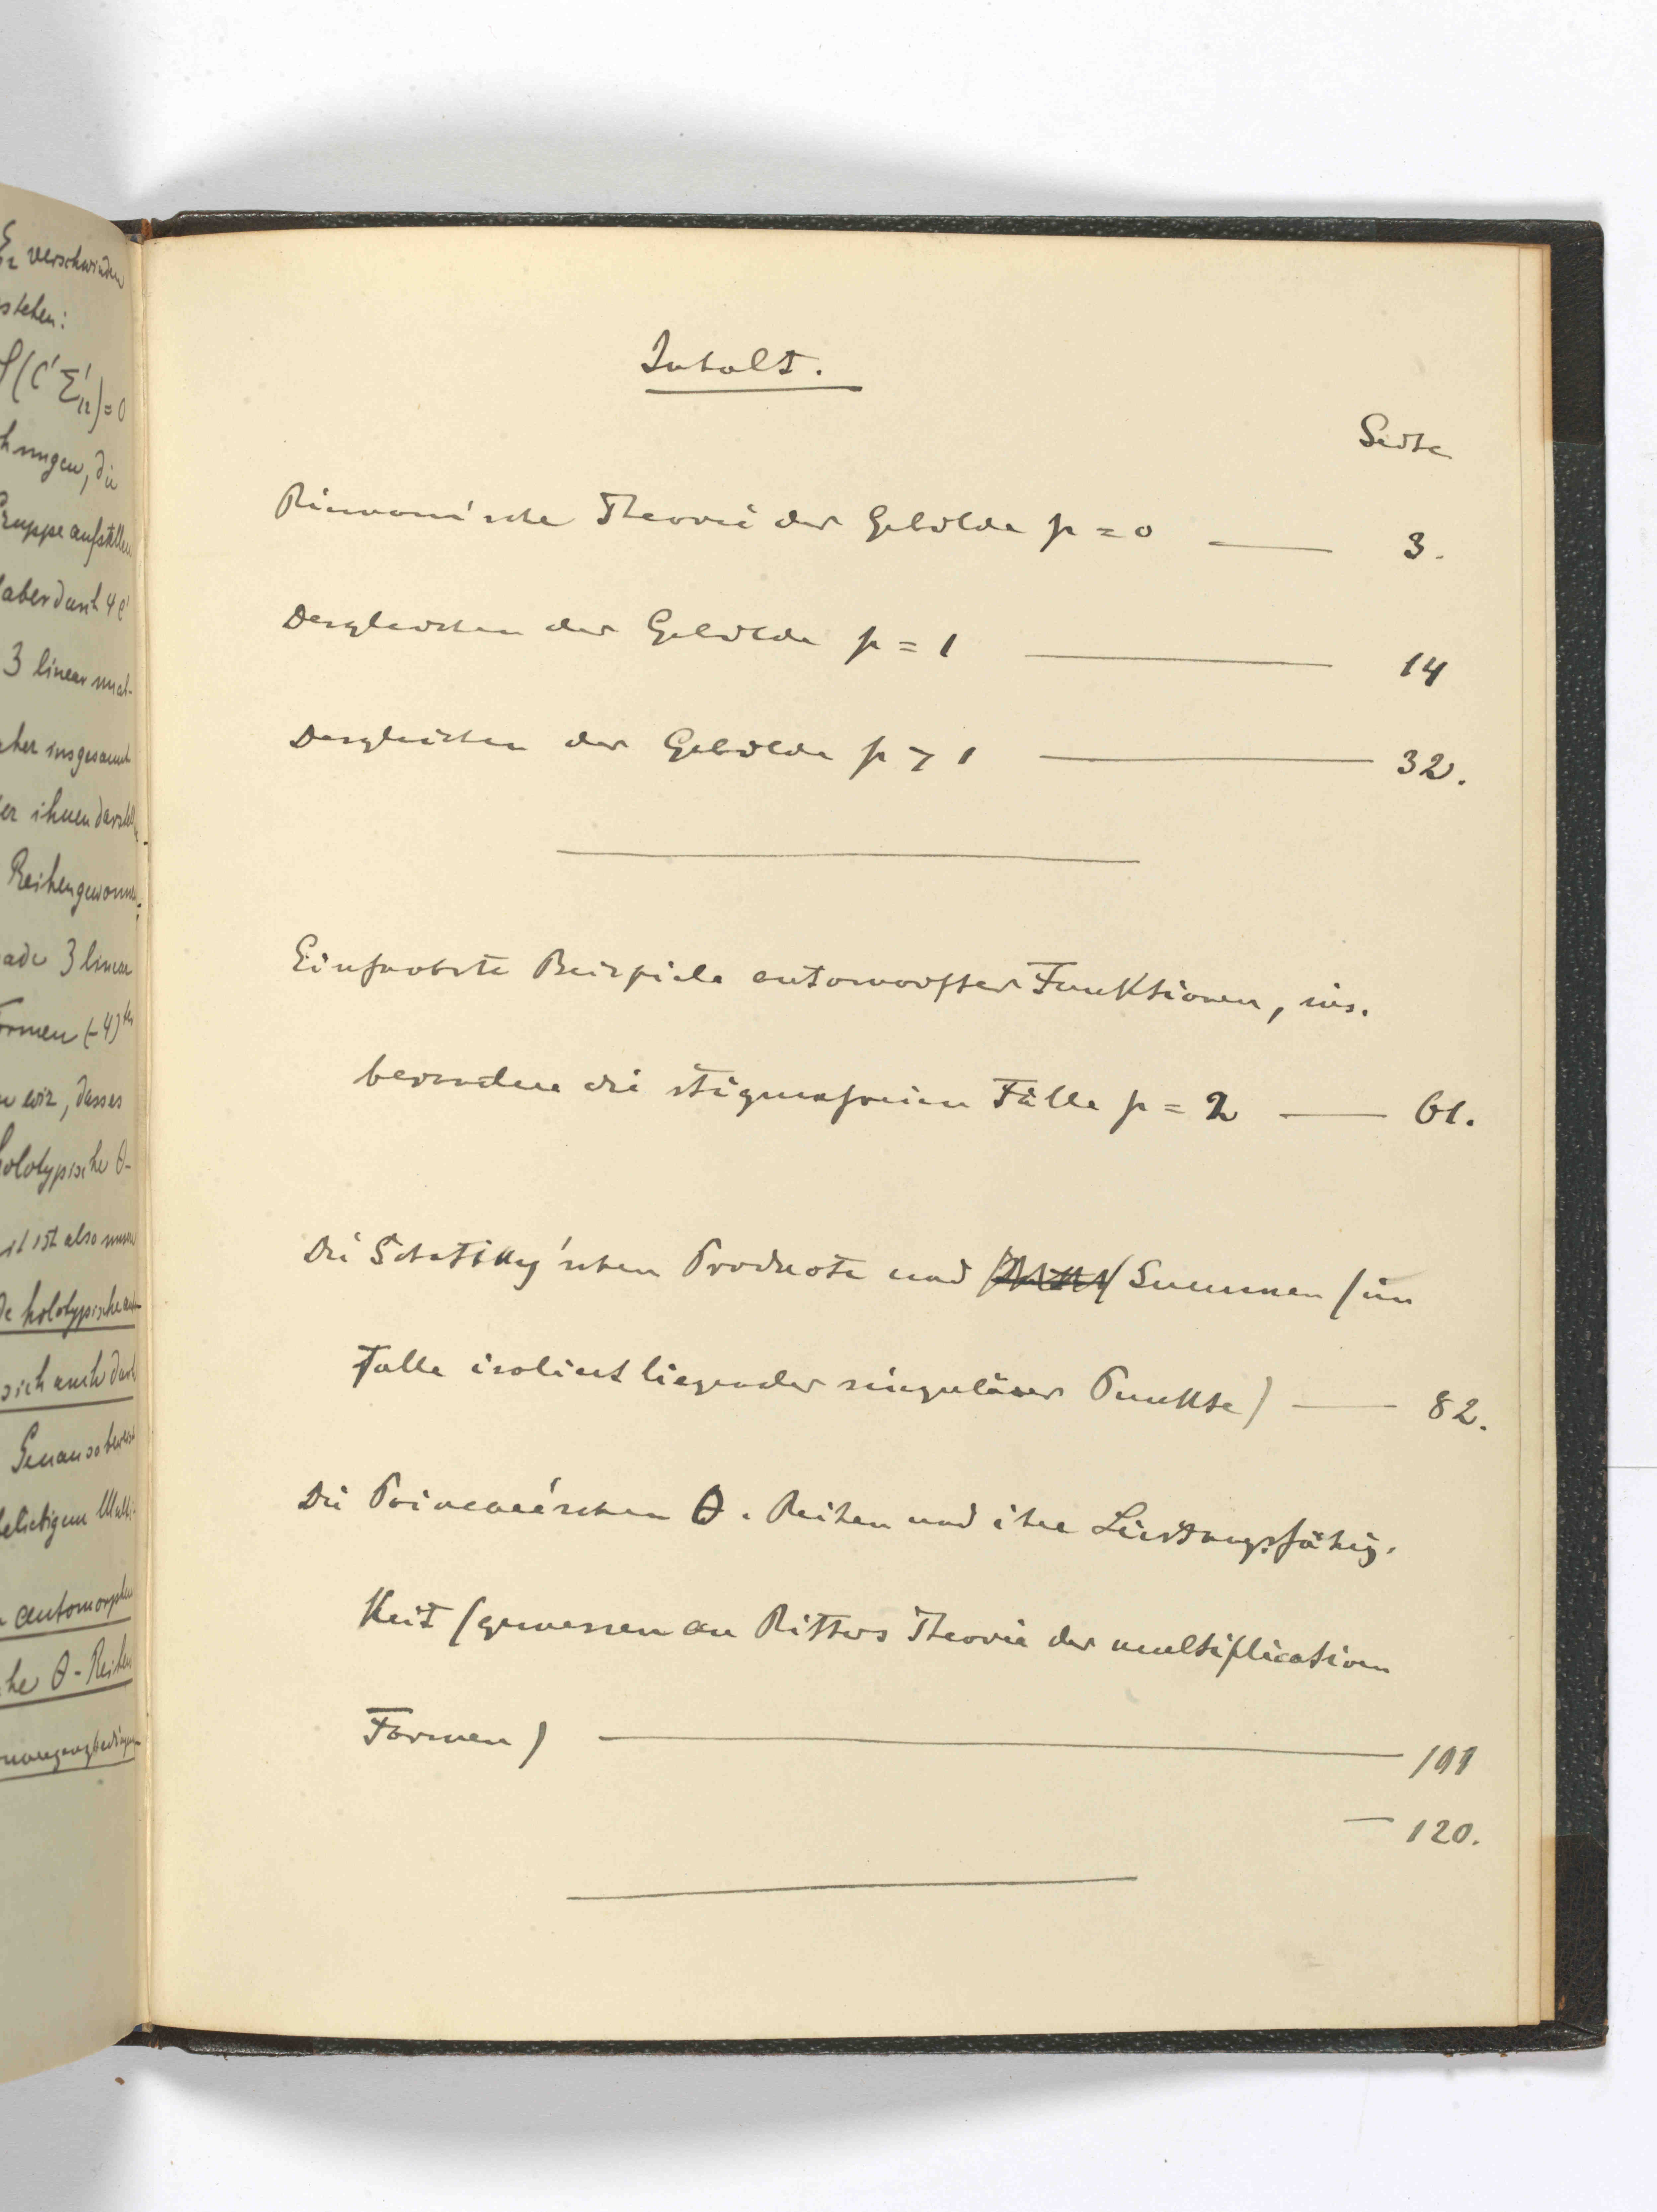 verschwinden
stehen:
(C'Σ'₁₂)=0
die
Gruppe aufstellen
aber durch 4
3 linear
insgesamt
ihnen
Reihen
3 linear
Formen (-4)
wir, dass es
holotypische θ-
ist also
holotypische
sich auch durch
Genau so
beliebigem
automorphen
he θ-Reihen
Inhalt.
Seite
Riemann'sche Theorie der Gebilde p = 0 — 3.
Desgleichen der Gebilde p = 1 — 14
Desgleichen der Gebilde p > 1 — 32.
Einfachste Beispiele automorpher Funktionen, ins-
besondere die stigmafreien Fälle p = 2 — 61.
Die Schottky'schen Producte und Summen (im
Falle isoliert liegender singulärer Punkte) — 82.
Die Poincaré'schen θ-Reihen und ihre Leistungsfähig-
keit (gemessen an Ritters Theorie der multiplicativen
Formen) — 101
— 120.